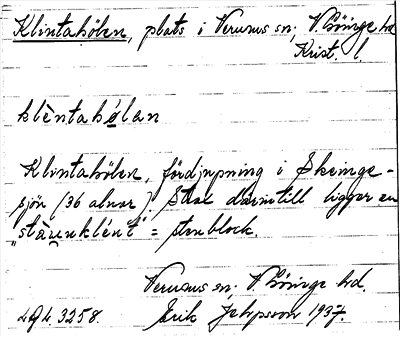 Klintahölen, plats i Verums sn; V. Göinge hd
Krist. l.
klèntahǿlan
Klintahölen, fördjupning i Skeinge-
sjön (36 alnar). Strax därintill ligger en
"stàunklént" = stenblock.
Verums sn. V. Göinge hd.
3258. Erik Jeppsson 1937.